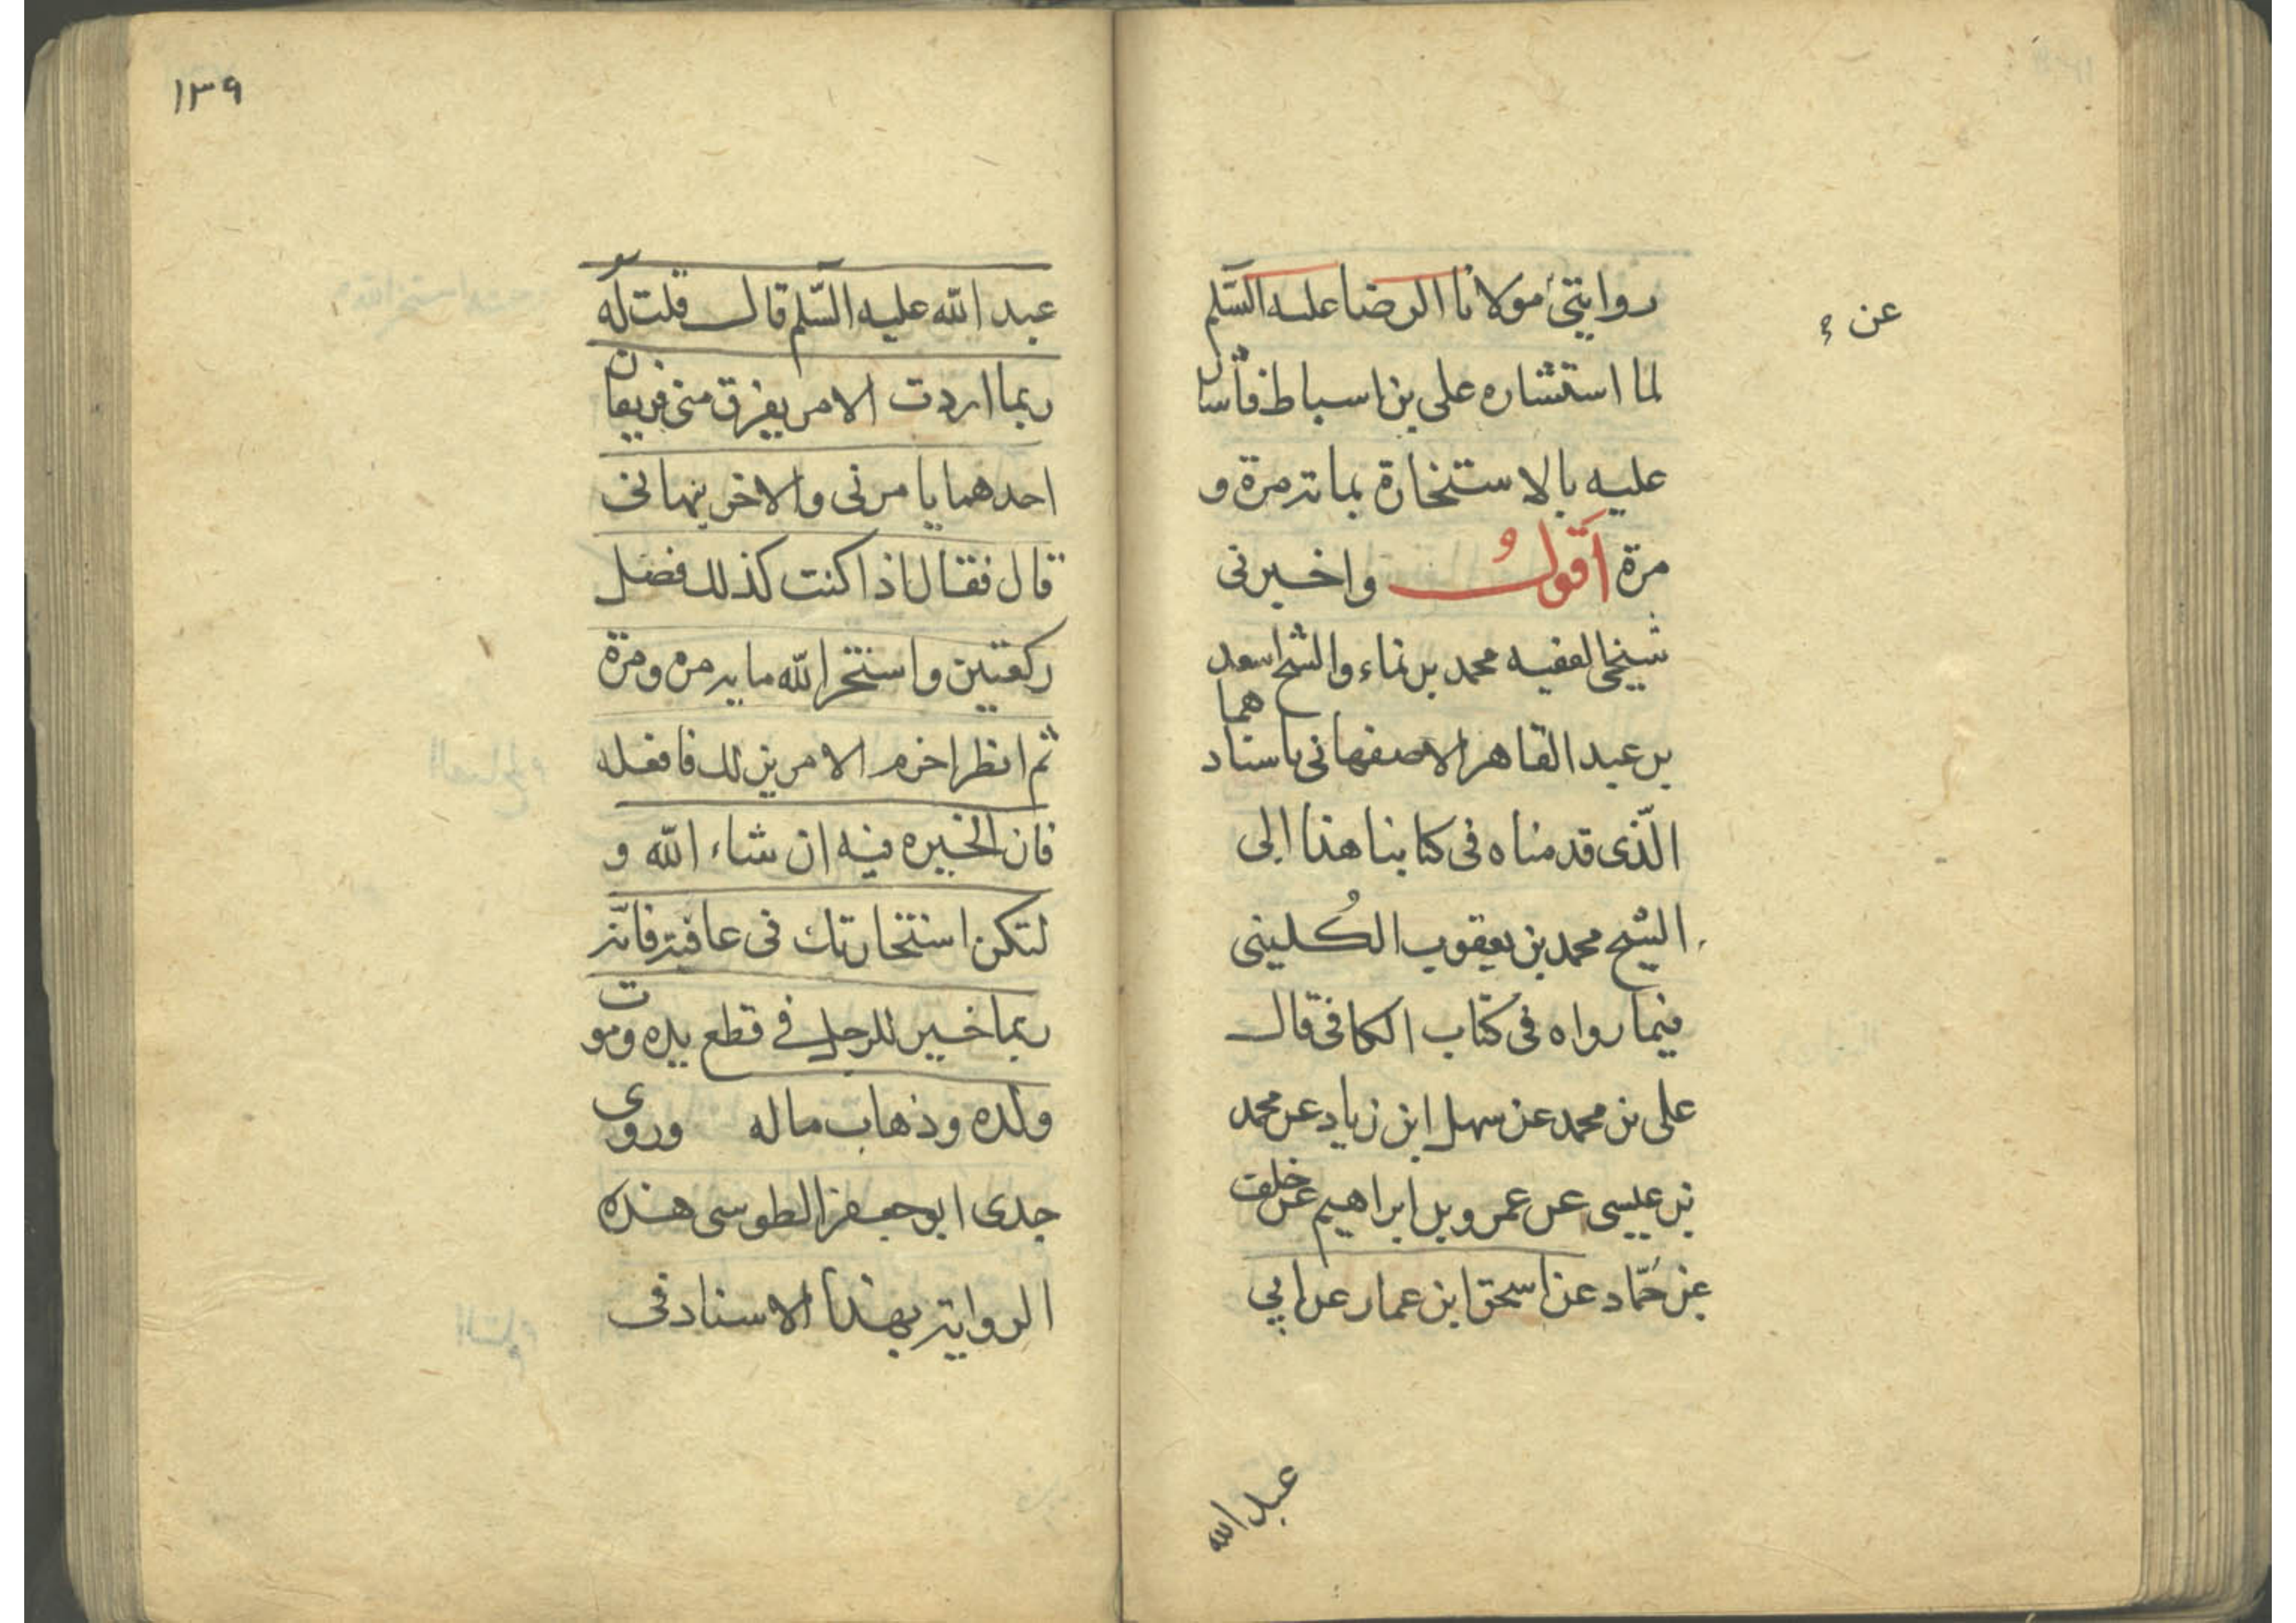 عن
روايتي مولانا الرضا عليه السّلم
لما استشاره علي بن اسباط فأشار
عليه بالاستخارة بماية مرة و
مرة أقولُ واخبرني
شيخي الفقيه محمد بن نماء والشيخ اسعد
بن عبد القاهر الاصفهاني باسنادهما
الّذي قدمناه في كتابنا هذا الى
الشيخ محمد بن يعقوب الكُليني
فيما رواه في كتاب الكافي قال
علي بن محمد عن سهل ابن زياد عن محمد
بن عيسى عن عمرو بن ابراهيم عن خلف
بن حمّاد عن اسحق ابن عمار عن ابي
عبد الله
١٣٩
عبد الله عليه السّلم قال قلت له
ربما اردت الامر يفرق مني فريقان
احدهما يامرني والاخر ينهاني
قال فقال اذا كنت كذلك فصل
ركعتين واستخر الله ماية مره ومرة
ثم انظر اخرم الامرين لك فافعله
فان الخيره فيه ان شاء الله و
لتكن استخارتك في عافية فانّه
ربما خير للرجل في قطع يده وموت
ولده وذهاب ماله وروى
جدي ابو جعفر الطوسي هذه
الرواية بهذا الاسناد في